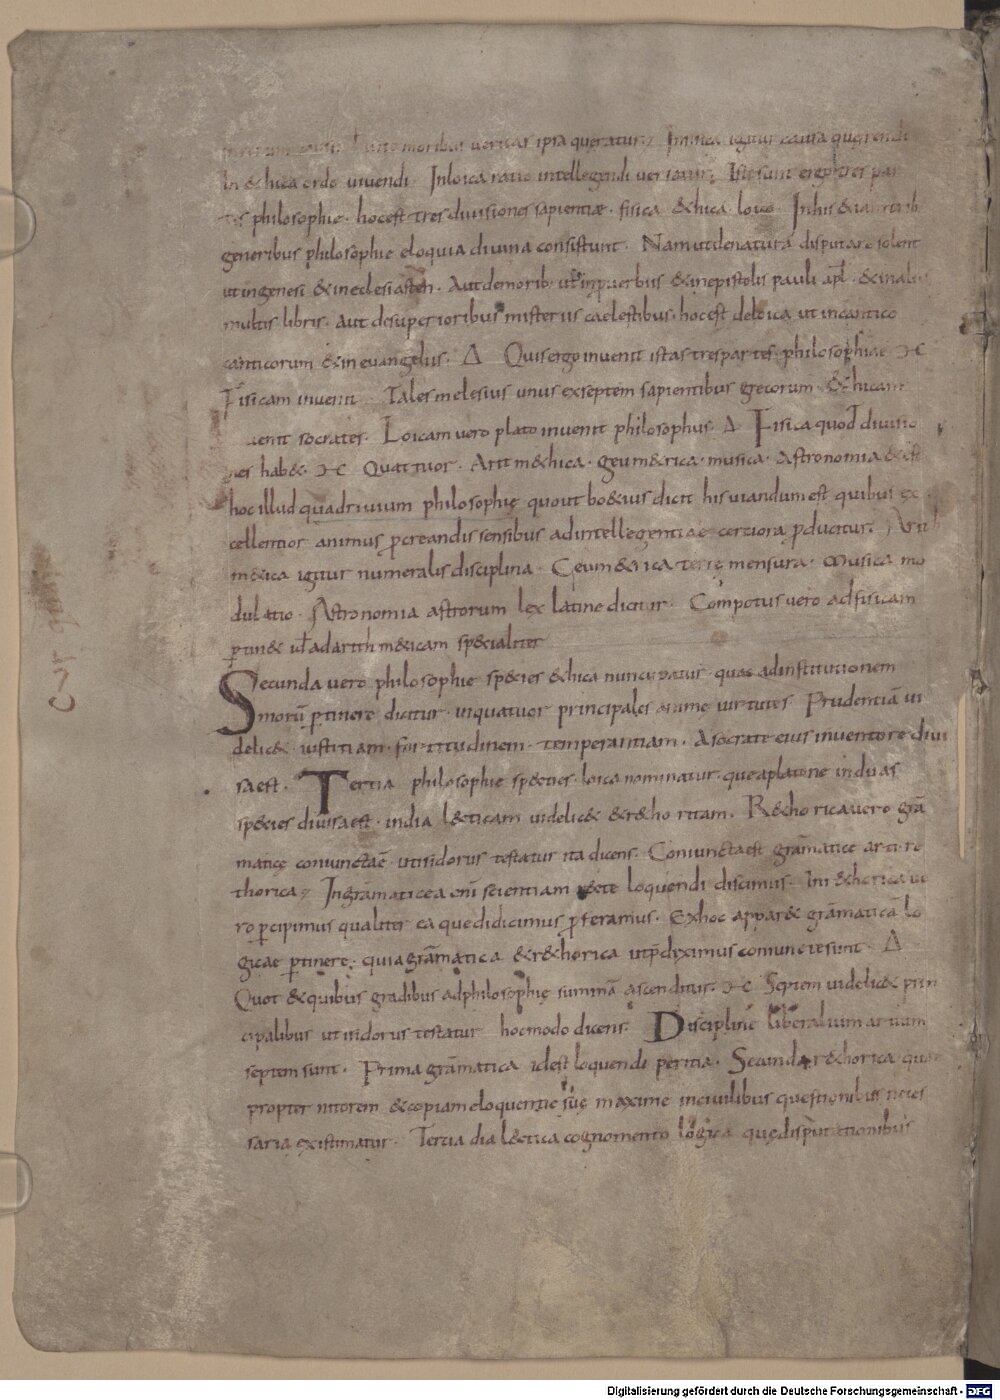 moribus ipsa queratur Infisica igitur causa querendi
In &hica ordo vivendi Inloica ratio intellegendi versatur; Isti sunt ergo tres par
philosophie · hocest tres divisiones sapientiæ · fisica &hica loica Inhis
generibus philosophie eloquia divina consistunt · Nam utdenatura disputare solent
utingenesi &ineclesiasten · Autdemorib; ut inpuerbiis &inepistolis pauli apl̄ · &inaliis
multis libris · aut desuperioribus misteriis caelestibus · hocest deloica ut incantico
canticorum &inevangeliis · Δ Quisergo invenit istas trespartes philosophiae
Fisicam invenit Tales melesius unus exseptem sapientibus grecorum &hicam
venit socrates · Loicam vero plato invenit philosophus · Δ Fisica quod divisio
nes hab& · Quattuor · Aritm&hica · geum&rica · musica · Astronomia
hoc illud quadriuium philosophię quo ut bo&ius dicit his viandum est quibus ex
cellentior animus pcreandis sensibus adintellegentiae certiora pducitur ·
m&ica igitur numeralis disciplina · Geum&rica terrę mensura · Musica mo
dulatio · Astronomia astrorum lex latine dicitur · Compotus vero adfisicam
ptin& ul̄ adarithm&icam sp&ialiter
Secunda vero philosophie sp&ies &hica nuncupatur · quae adinstitutionem
morū ptinere dicitur · inquatuor principales anime virtutes Prudentiā vi
delic& · iustitiam · fortitudinem · temperantiam · A socrate eius inventore divi
sa est · Tertia philosophie sp&ies · loica nominatur · que a platone induas
sp&ies divisa est · india l&ticam videlic& &r&horicam · R&horica vero grā
maticę coniuncta ē utisidorus testatur ita dicens · Coniuncta est grāmatice arti re
thorica · Ingrāmatice a enī scientiam recte loquendi discimus · Inr&horica ve
ro pcipimus qualiter ea que didicimus pferamus · Exhoc appar& grāmaticā lo
gicae ptinere; quia grāmatica &r&horica utpdiximus coniuncte sunt · Δ
Quot &quibus gradibus adphilosophię summā ascenditur · Septem videlic& prin
cipalibus ut isidorus testatur hocmodo dicens · Disciplinę liberalium artium
septem sunt · Prima grāmatica id est loquendi peritia · Secunda r&horica que
propter nitorem &copiam eloquentię suę maxime incivilibus questionibus neces
saria existimatur · Tertia dial&tica cognomento logica quę disputationibus